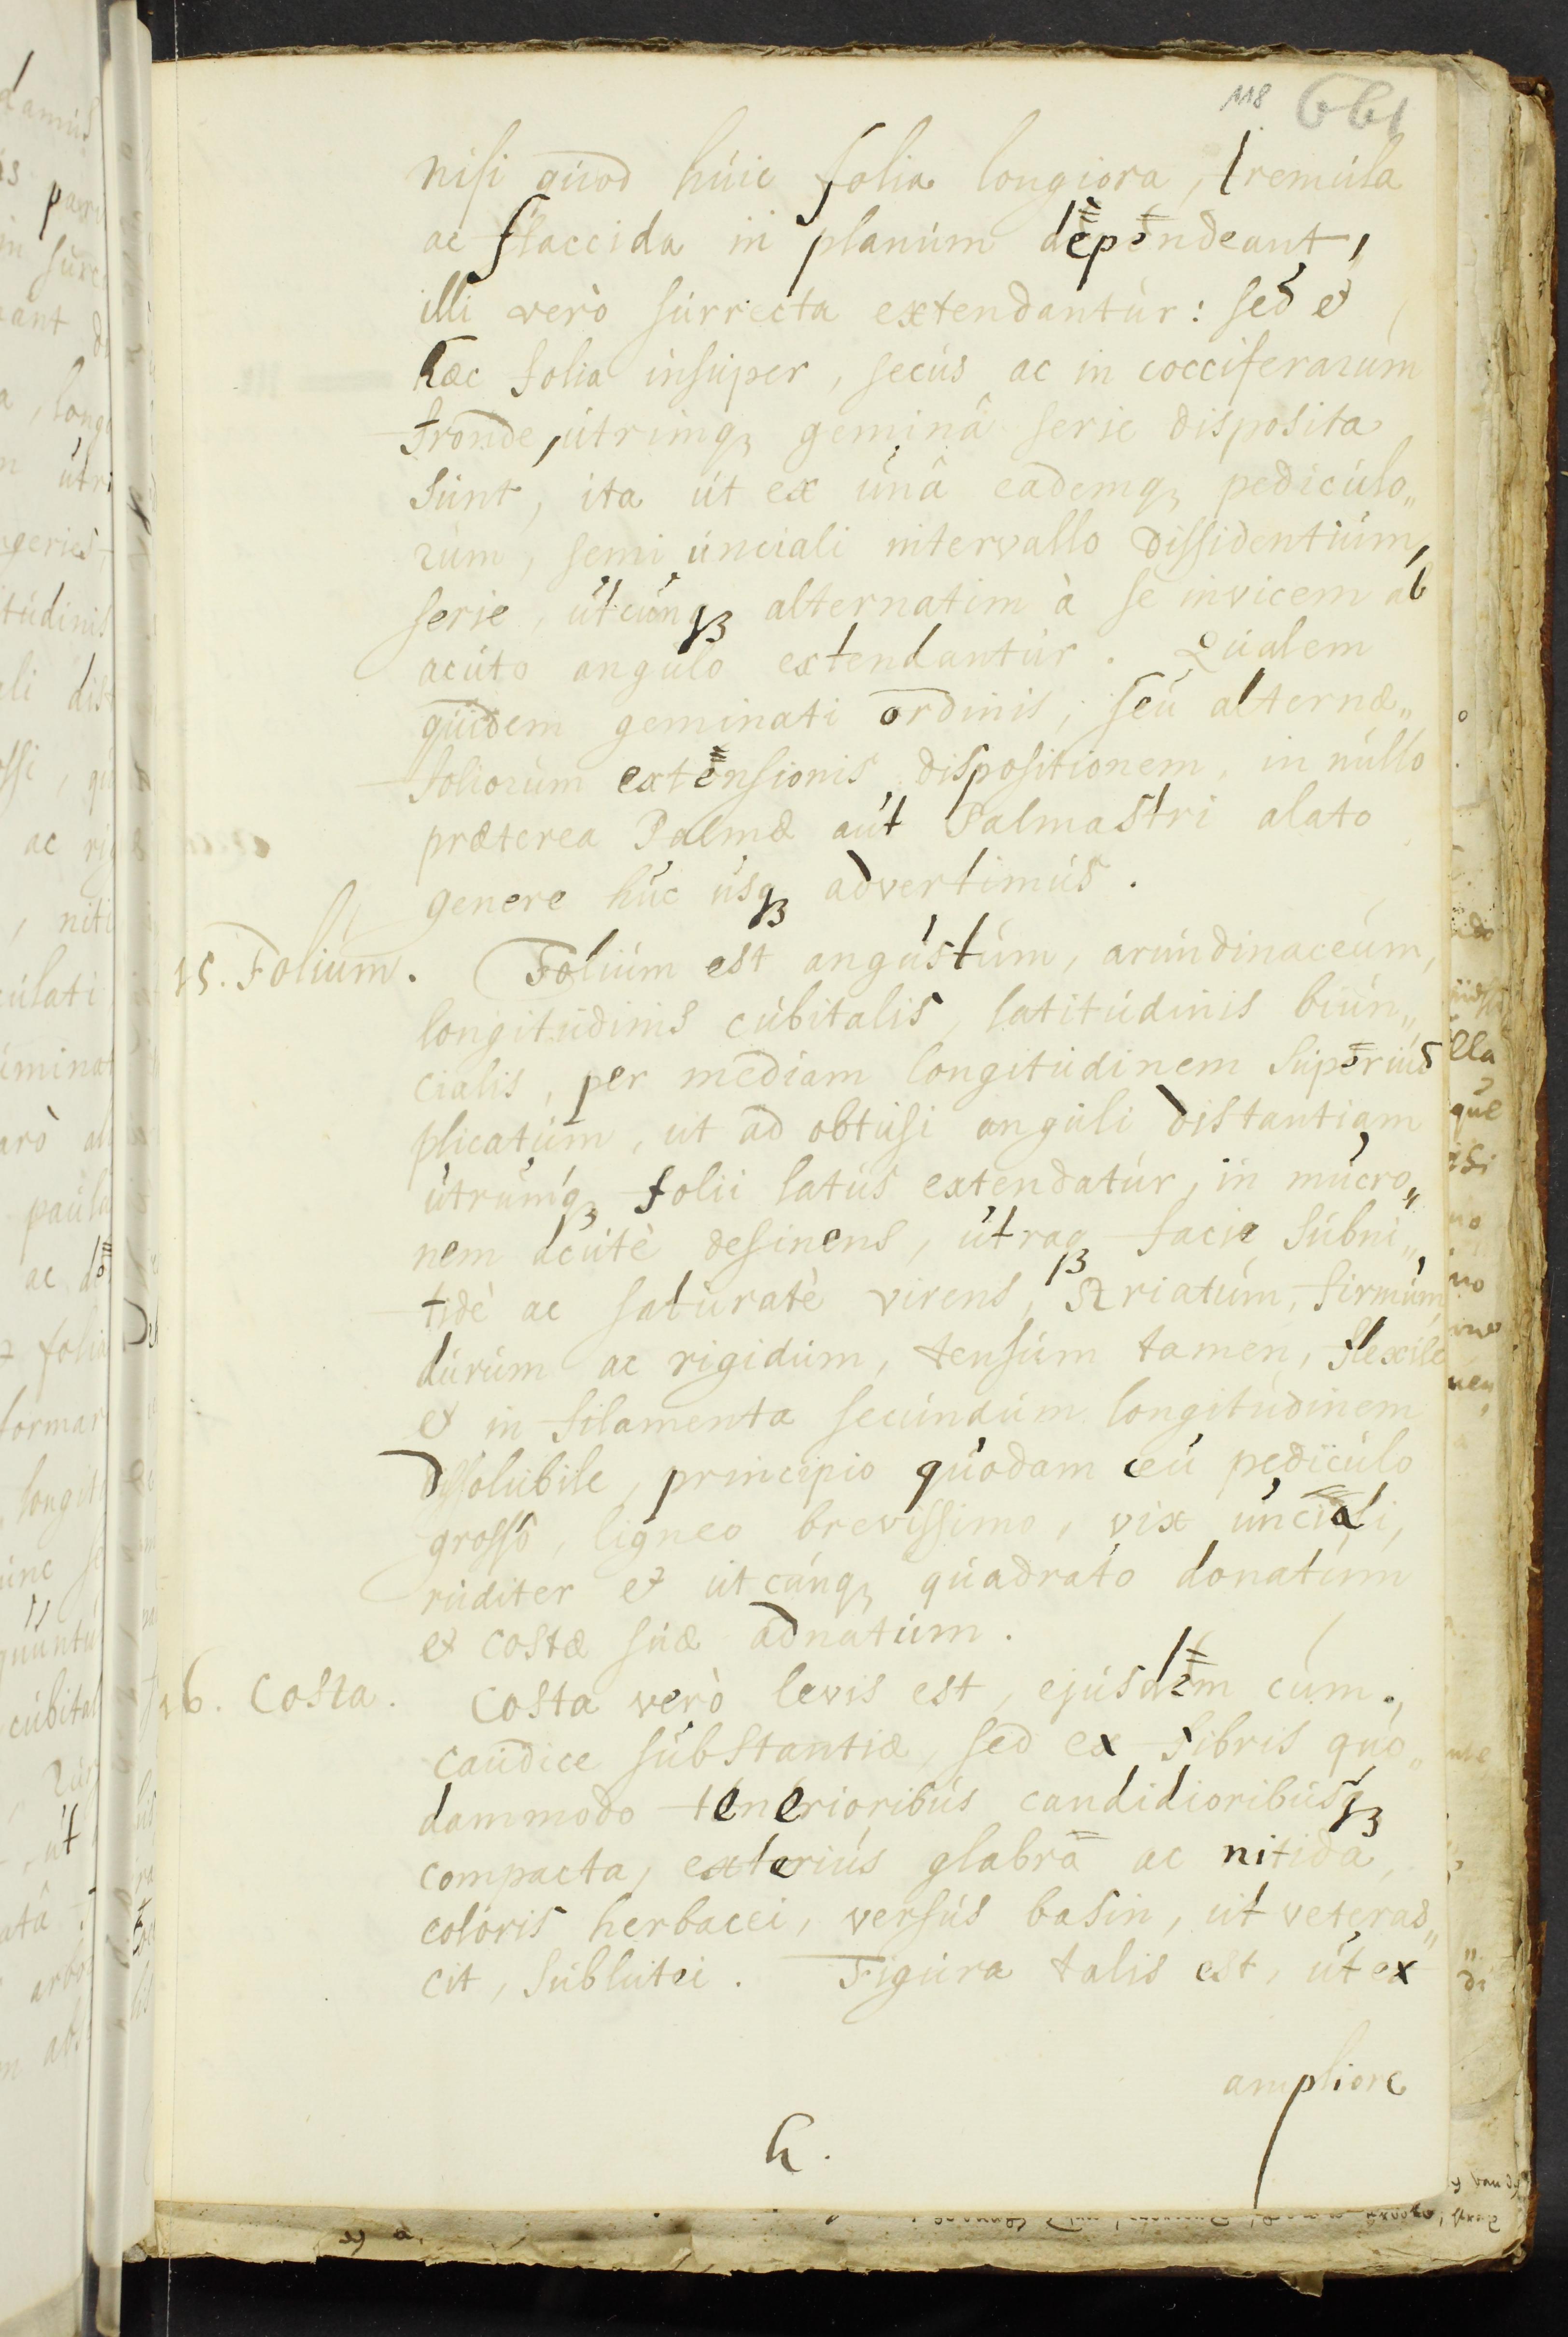 118 661
nisi quod huic folia longiora, tremula
ac flaccida in planum dependeant,
illi verò surrecta extendantur: sed et
hæc folia insuper, secus ac in cocciferarum
fronde, utrimq₃ geminâ serie disposita
sunt, ita ut ex unâ eademq₃ pediculo„
rum, semi unciali intervallo dissidentium,
serie, utcunq₃ alternatim à se invicem ab
acuto angulo extendantur. Qualem
quidem geminati ordinis, seu alternæ„
foliorum extensionis dispositionem, in nullo
præterea Palmæ aut Palmastri alato
genere huc usq₃ advertimus.
15. Folium. Folium est angustum, arundinaceum,
longitudinis cubitalis, latitudinis biun„
cialis, per mediam longitudinem superius
plicatum, ut ad obtusi anguli distantiam
utrumq₃ folii latus extendatur, in mucro„
nem acutè desinens, utraq₃ facie subni„
tidè ac saturatè virens, striatum, firmum,
durum ac rigidum, tensum tamen, flexile
et in filamenta secundum longitudinem
dissolubile, principio quodam ceu pediculo
grosso, ligneo brevissimo, vix unciali,
ruditer et utcunq₃ quadrato donatum
et costæ suæ adnatum.
16. Costa. Costa verò levis est, ejusdem cum
caudice substantiæ, sed ex fibris quo„
dammodo tenerioribus candidioribusq₃
compacta, exterius glabra ac nitida,
coloris herbacei, versus basin, ut veteras„
cit, sublutei. Figura talis est, ut ex
ampliore
h.